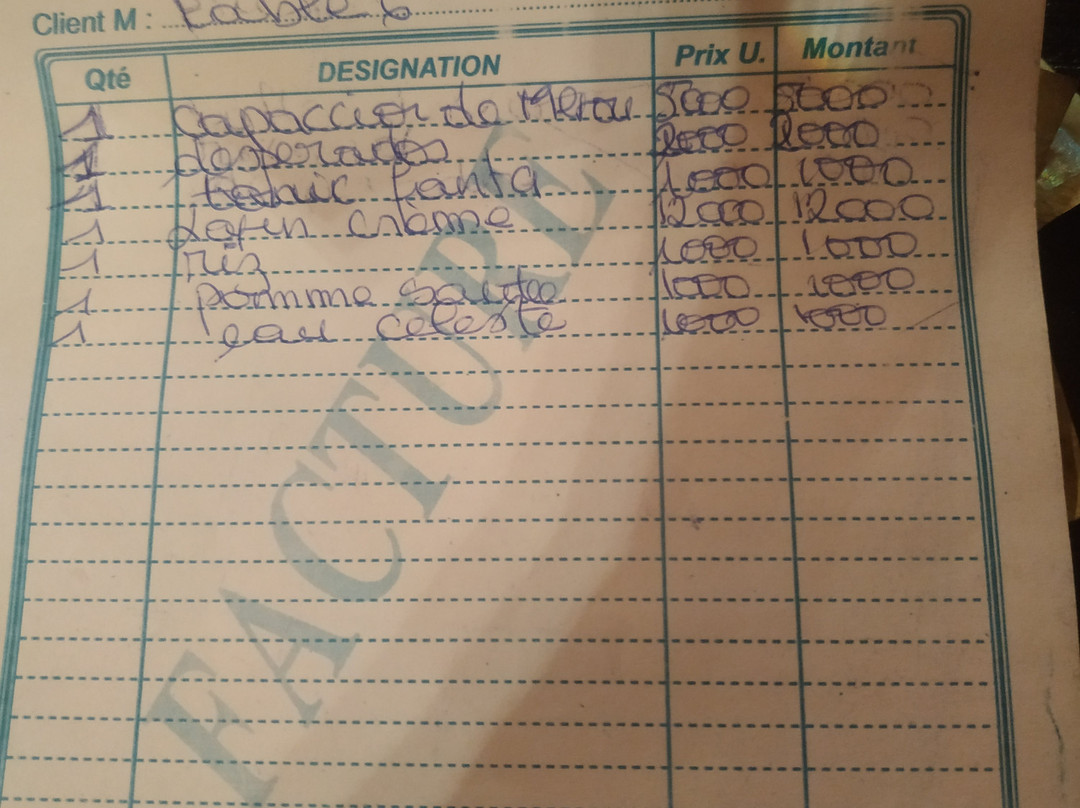 Client M : Table 6
Qté DESIGNATION Prix U. Montant
1 Capaccior de Merou 5000 5000
1 desperados 2000 2000
1 tonic fanta 1000 1000
1 crème 12000 12000
1 riz 1000 1000
1 pomme sautée 1000 1000
1 eau celeste 1000 1000
FACTURE